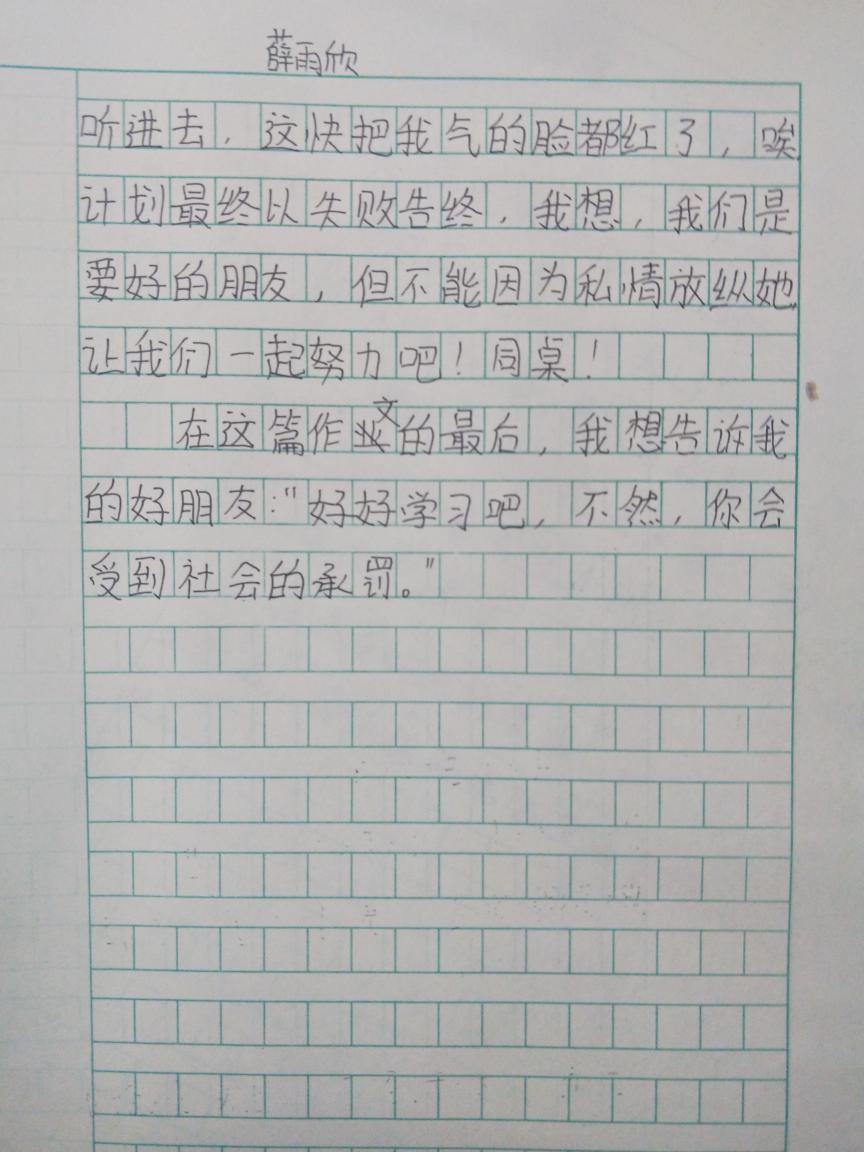 薛雨欣
听进去，这快把我气的脸都红了，唉
计划最终以失败告终，我想，我们是
要好的朋友，但不能因为私情放纵她
让我们一起努力吧！同桌！
在这篇作文的最后，我想告诉我
的好朋友："好好学习吧，不然，你会
受到社会的承罚。"